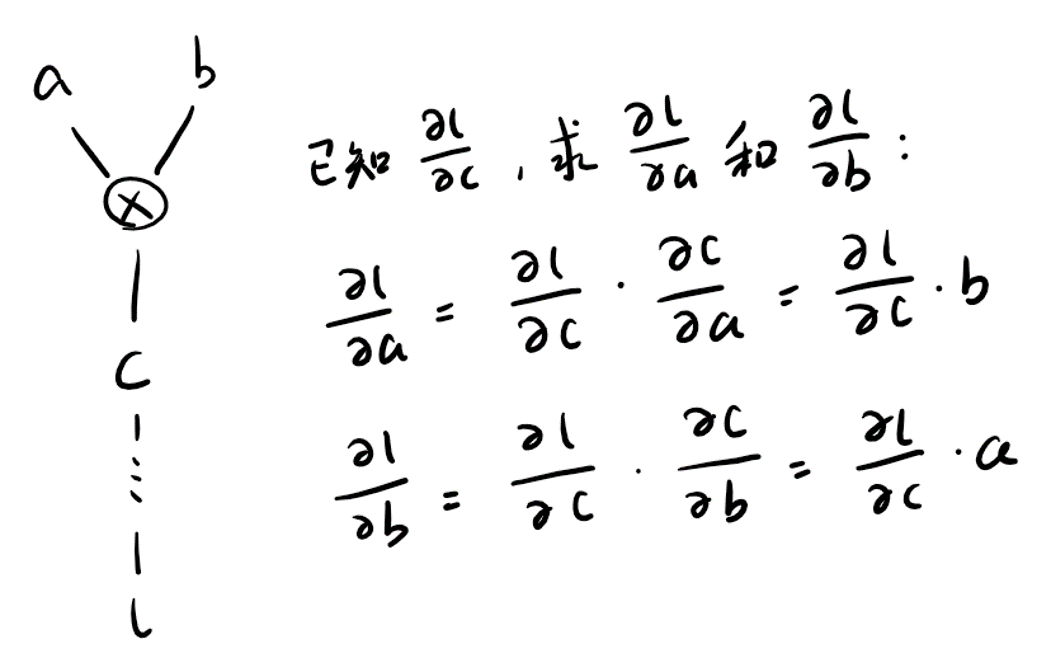 a b
×
C
l
已知 ∂l/∂c , 求 ∂l/∂a 和 ∂l/∂b :
∂l/∂a = ∂l/∂c · ∂c/∂a = ∂l/∂c · b
∂l/∂b = ∂l/∂c · ∂c/∂b = ∂l/∂c · a